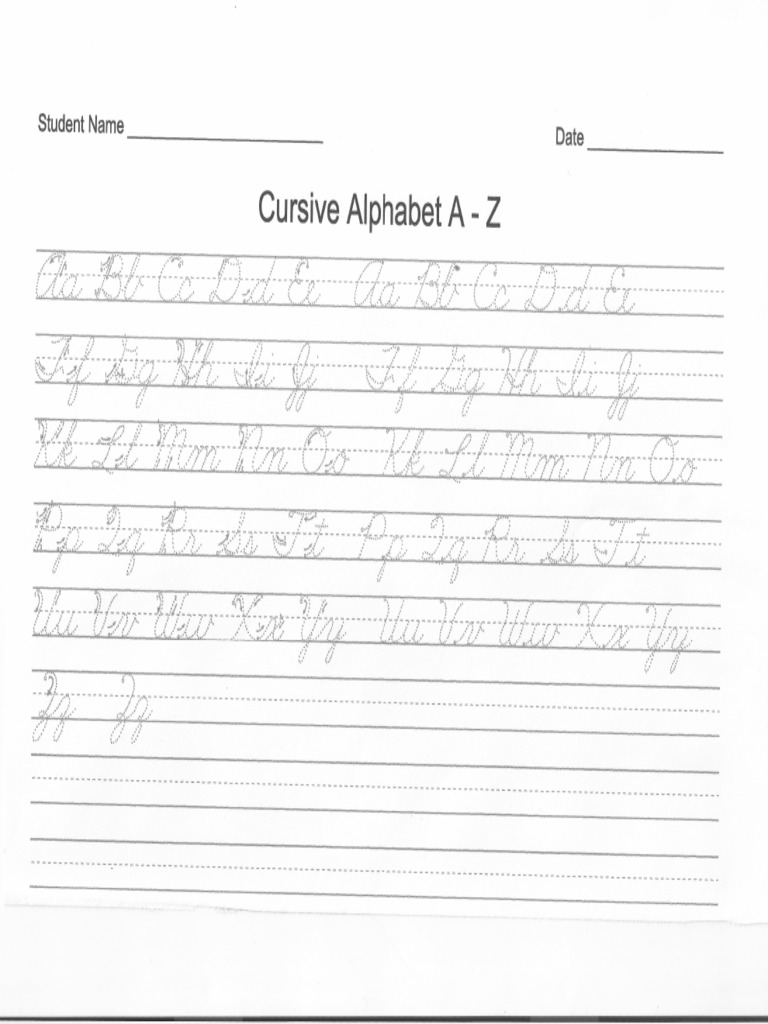 Student Name
Date
Cursive Alphabet A - Z
Aa Bb Cc Dd Ee Aa Bb Cc Dd Ee
Ff Gg Hh Ii Jj Ff Gg Hh Ii Jj
Kk Ll Mm Nn Oo Kk Ll Mm Nn Oo
Pp Qq Rr Ss Tt Pp Qq Rr Ss Tt
Uu Vv Ww Xx Yy Uu Vv Ww Xx Yy
Zz Zz